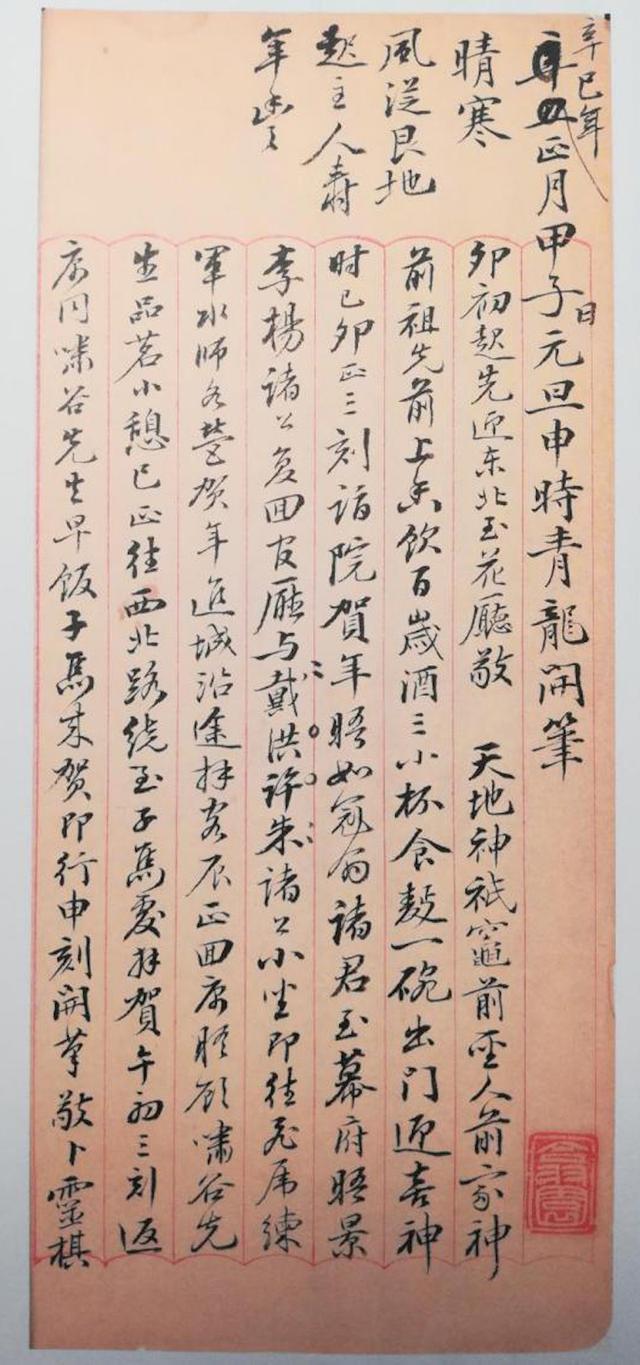 辛巳年
正月甲子日元旦申時青龍開筆
晴寒
風從艮地
起主人壽
年豐
卯初起先迎东北至花廳敬 天地神祇竈前聖人前家神
前祖先前上香飲百歲酒三小杯食麪一碗出門迎喜神
时已卯正三刻詣院賀年晤如冠翁諸君至幕府晤景
李楊諸公复回官廳与戴洪許朱諸公小坐即往飛虎練
軍水师各營贺年進城沿途拜客辰正回寓晤顾嘯谷先
生品茗小憩巳正往西北路绕至子馬處拜賀午初三刻返
寓同嘯谷先生早饭子馬来贺即行申刻開筆敬卜靈棋